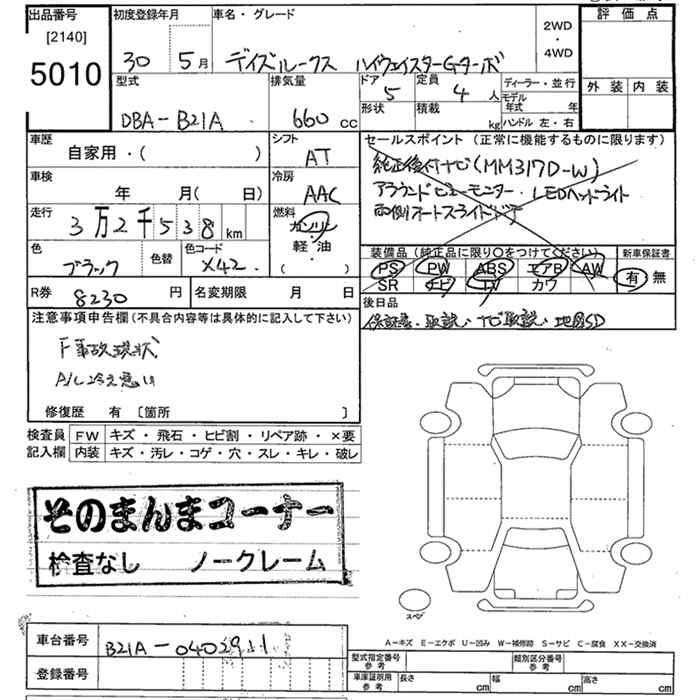 出品番号
[2140]
5010
初度登録年月
30 5月
車名・グレード
デイズルークス ハイウェイスターGターボ
2WD
・
4WD
評価点
外装 内装
型式
DBA-B21A
排気量
660cc
ドア
5
定員
4人
形状
積載
kg
ディーラー・並行
モデル年式 年
ハンドル 左・右
車歴
自家用・( )
シフト
AT
車検
年 月( 日)
冷房
AAC
走行
3万2千538km
燃料
ガソリン
軽・油
( )
色
ブラック
色替
色コード
X42
R券 8230円
名変期限 月 日
セールスポイント (正常に機能するものに限ります)
純正後付ナビ(MM317D-W)
アラウンドビューモニター・LEDヘッドライト
両側オートスライドドア
装備品 (純正品に限り○をつけてください)
PS PW ABS エアB AW
SR ナビ TV カワ
新車保証書
有 無
後日品
保証書、取説、ナビ取説、地図SD
注意事項申告欄(不具合内容等は具体的に記入して下さい)
F事故現状
A/C冷え悪い
修復歴 有 [箇所 ]
検査員 FW キズ・飛石・ヒビ割・リペア跡・×要
記入欄 内装 キズ・汚レ・コゲ・穴・スレ・キレ・破レ
そのまんまコーナー
検査なし ノークレーム
スペア
A-キズ E-エクボ U-凹み W-補修跡 S-サビ C-腐食 XX-交換済
車台番号 B21A-0402911
登録番号
型式指定番号 参考
類別区分番号 参考
車庫証明用 参考
長さ cm
幅 cm
高さ cm